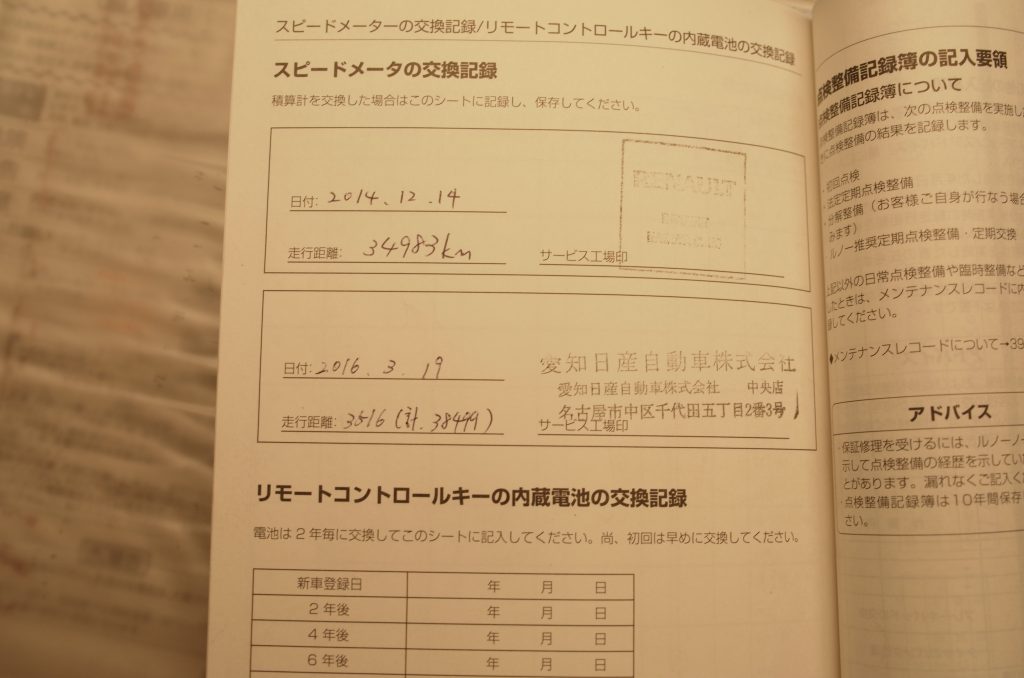 スピードメーターの交換記録/リモートコントロールキーの内蔵電池の交換記録
スピードメータの交換記録
積算計を交換した場合はこのシートに記録し、保存してください。
RENAULT
日付: 2014.12.14
走行距離: 34983km
サービス工場印
愛知日産自動車株式会社
日付: 2016.3.19
愛知日産自動車株式会社 中央店
名古屋市中区千代田五丁目2番3号
走行距離: 3516(計.38499)
サービス工場印
リモートコントロールキーの内蔵電池の交換記録
電池は2年毎に交換してこのシートに記入してください。尚、初回は早めに交換してください。
新車登録日 年 月 日
2年後 年 月 日
4年後 年 月 日
6年後 年 月 日
点検整備記録簿の記入要領
点検整備記録簿について
検整備記録簿は、次の点検整備を実施し
に点検整備の結果を記録します。
・初回点検
・法定定期点検整備
・分解整備(お客様ご自身が行なう場合
みます)
ルノー推奨定期点検整備・定期交換
上記以外の日常点検整備や臨時整備など
したときは、メンテナンスレコードに
してください。
◆メンテナンスレコードについて→39
アドバイス
・保証修理を受けるには、ルノー
示して点検整備の経歴を示してい
とがあります。漏れなくご記入く
・点検整備記録簿は10年間保存
さい。